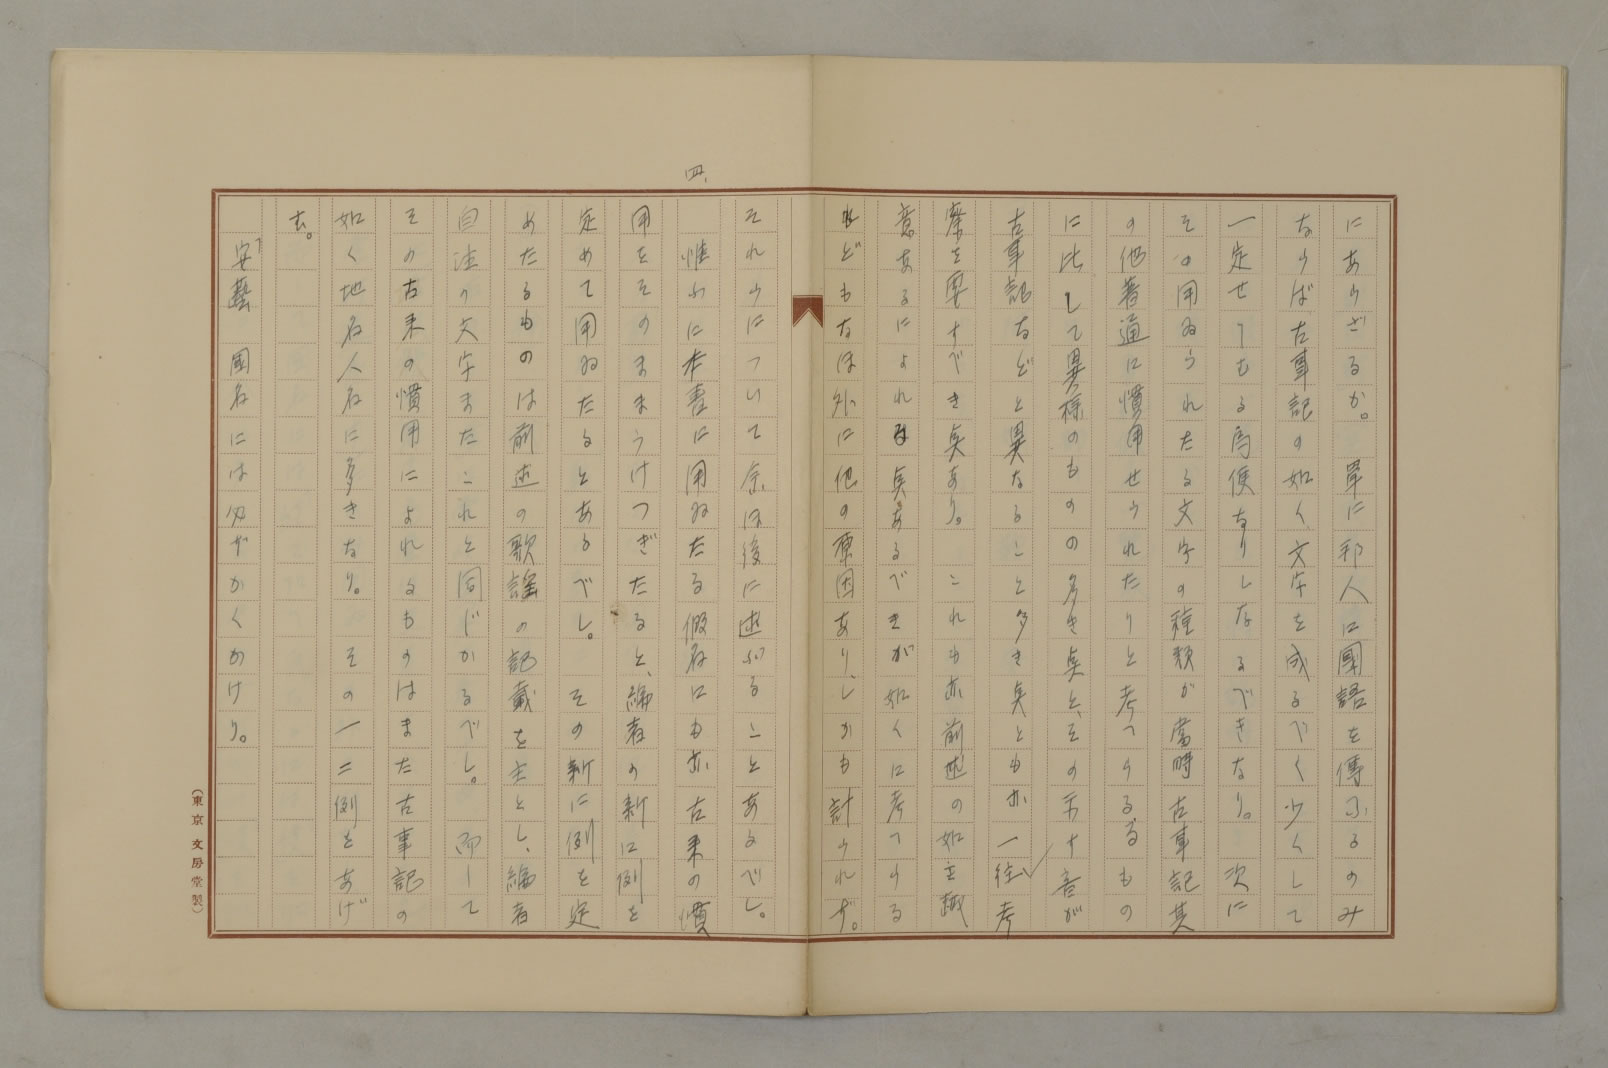 にあらざるか。 單に邦人に國語を傳ふるのみ
ならば古事記の如く文字を成るべく少くして
一定せしむる爲便なりしなるべきなり。 次に
その用ゐられたる文字の種類が當時古事記其
の他普通に慣用せられたりと考へらるるもの
に比して異樣のものの多き眞と、その五十音が
古事記などと異なること多き眞とも亦一往考
察を要すべき眞あり。 これも亦前述の如き趣
意あるによれる眞あるべきが如くに考へらる
れどもなほ外に他の原因あり、しかも計られず。
それらについて余は後に述ぶることあるべし。
四、
惟ふに本書に用ゐたる假名にも亦古来の慣
用をそのままうけつぎたると、編者の新に例を
定めて用ゐたるとあるべし。 その新に例を定
めたるものは前述の歌謠の記載を主とし、編者
自注の文字またこれと同じかるべし。 而して
その古来の慣用によれるものはまた古事記の
如く地名人名に多きなり。 その一二例をあげ
む。
安藝 國名には必ずかくかけり。
(東京 文房堂製)